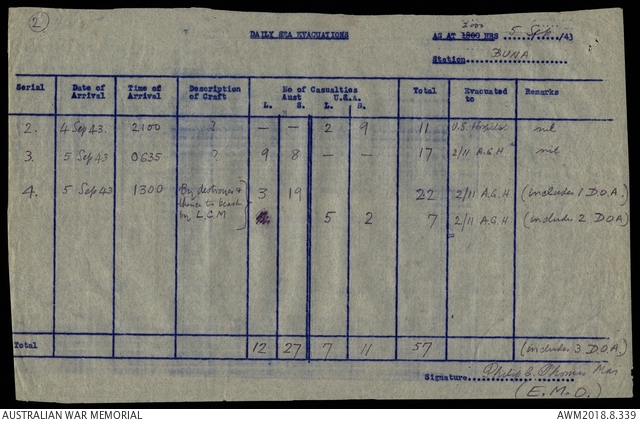 (2)
DAILY SEA EVACUATIONS
AS AT 1800 HRS 5 Sep /43
Station BUNA
Serial Date of Arrival Time of Arrival Description of Craft No of Casualties Total Evacuated to Remarks
Aust U.S.A.
L. S. L. S.
2. 4 Sep 43. 2100 ? — — 2 9 11 U.S. Hospital nil
3. 5 Sep 43 0635 ? 9 8 — — 17 2/11 A.G.H nil
4. 5 Sep 43 1300 By destroyer & thence to beach by L.C.M 3 19 22 2/11 A.G.H (includes 1 D.O.A.)
5 2 7 2/11 A.G.H (include 2 D.O.A)
Total 12 27 7 11 57 (includes 3 D.O.A.)
Signature Philip E. Thomas Maj
(E.M.O.)
AUSTRALIAN WAR MEMORIAL AWM2018.8.339